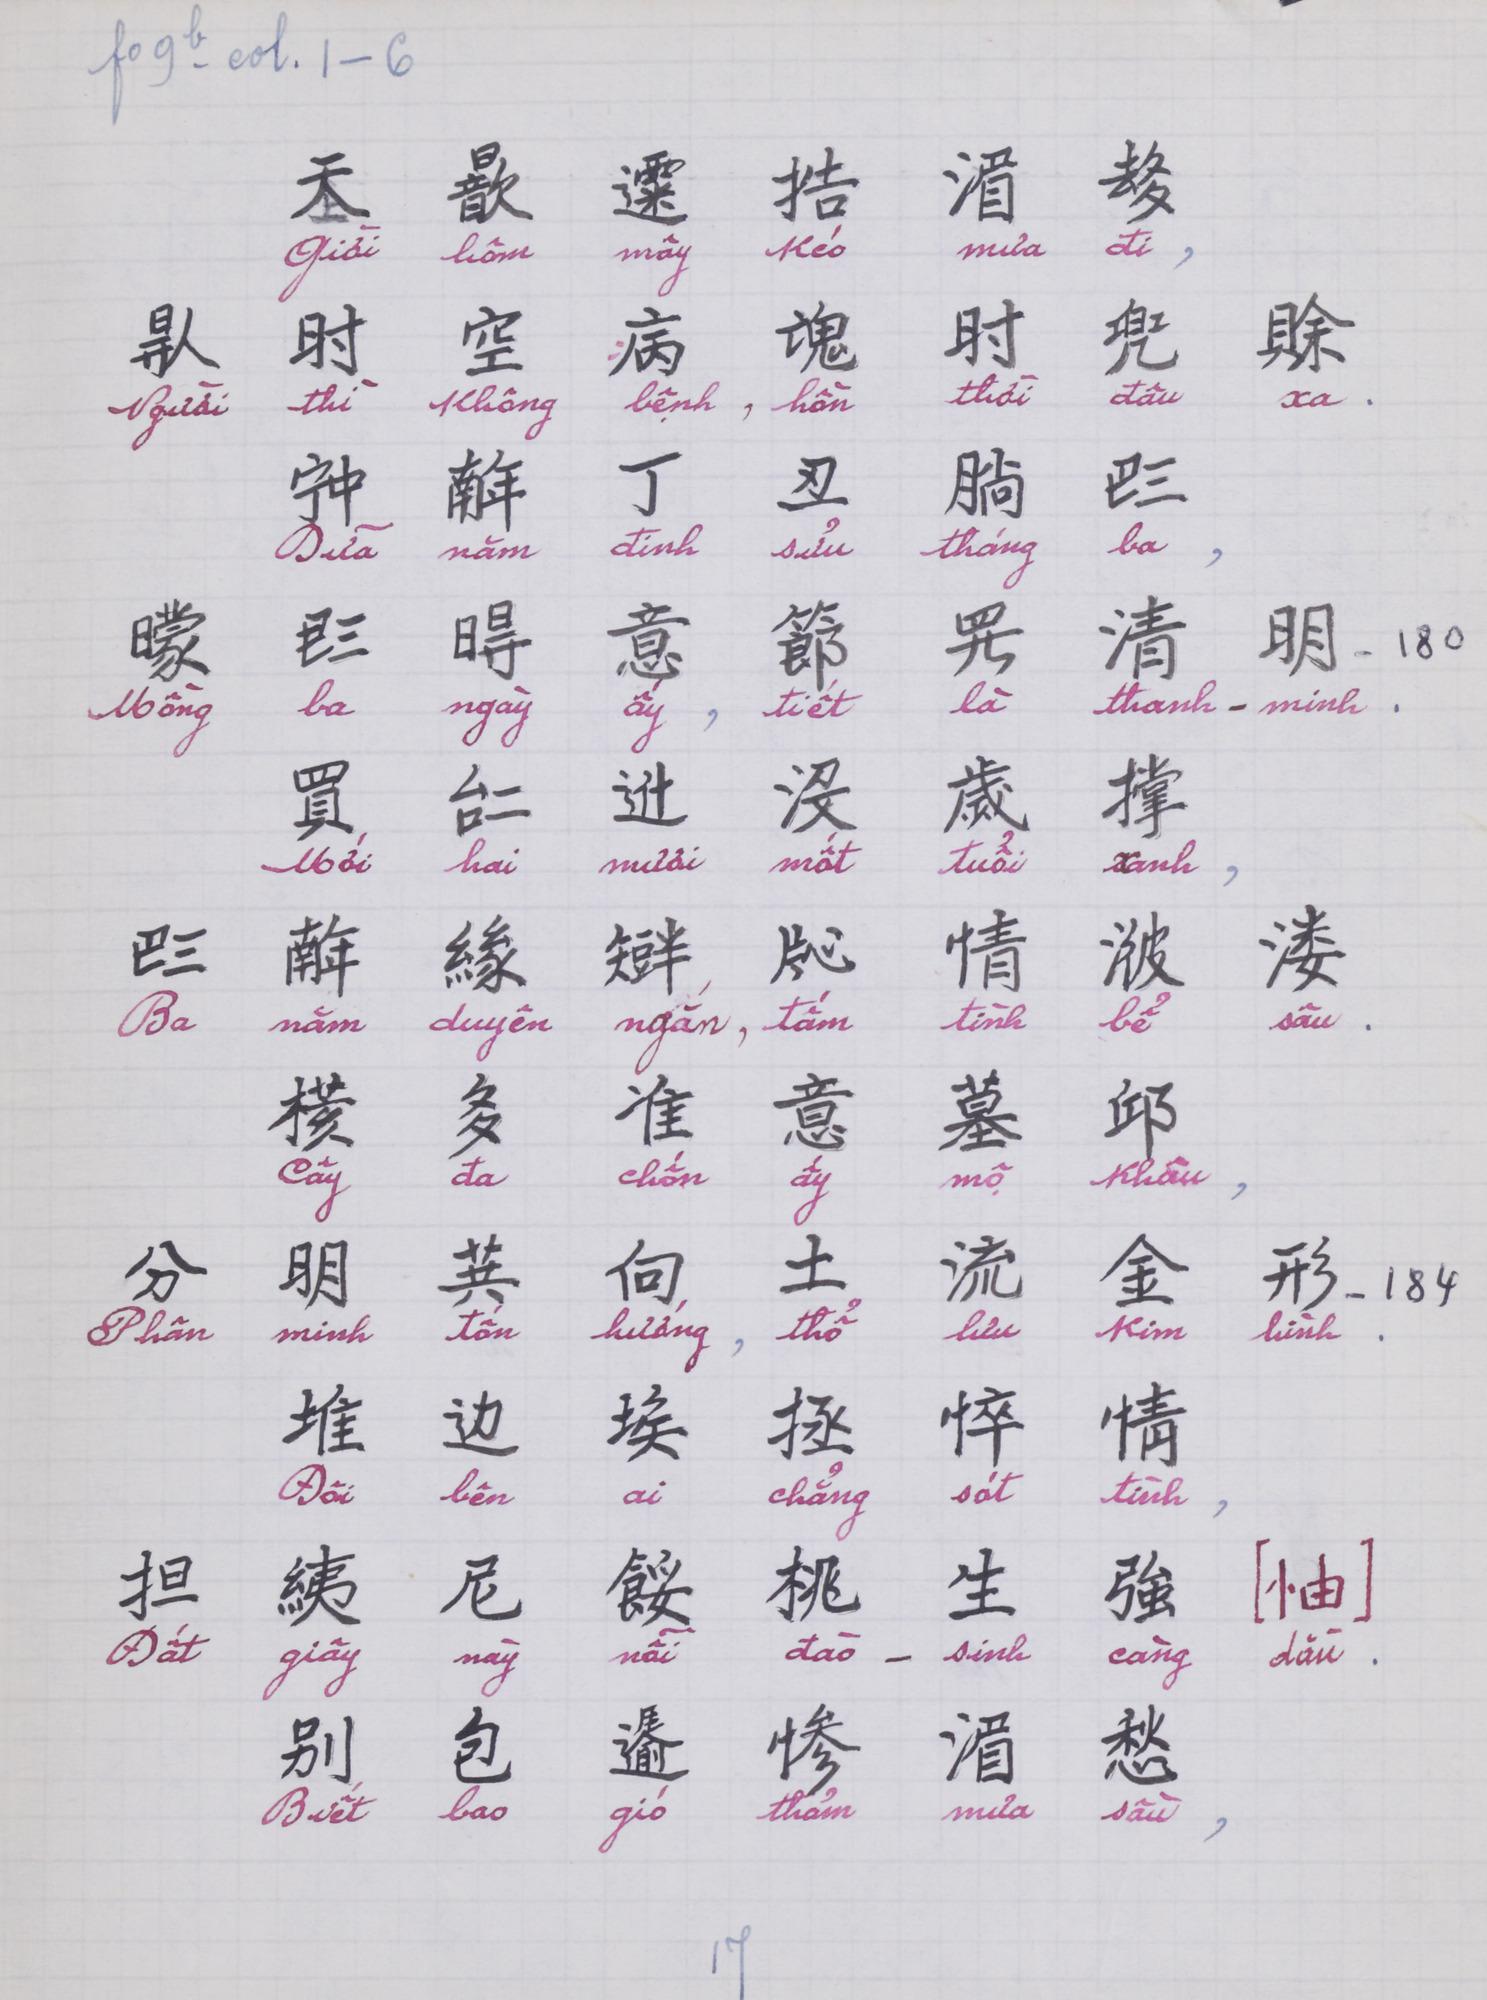 fo 9b col. 1–6
𡗶 歆 𩄲 捁 湄 𠫾
Giời hôm mây kéo mưa đi,
𠊛 时 空 病 魂 时 兜 賖
Người thì không bệnh, hồn thời đâu xa.
𡨌 𢆥 丁 丑 𣎃 𠀧
Dữa năm đinh sửu tháng ba,
𣋽 𠀧 𣈜 意 節 罖 清 明 - 180
Mồng ba ngày ấy, tiết là thanh-minh.
買 𠄩 𨑮 沒 歲 撑
Mới hai mươi mốt tuổi xanh,
𠀧 𢆥 緣 𥐆 𤗲 情 𣷷 溇
Ba năm duyên ngắn, tấm tình bể sâu.
𣘃 多 准 意 墓 邱
Cây đa chốn ấy mộ khâu,
分 明 巽 向 土 流 金 形 - 184
Phân minh tốn hướng, thổ lưu kim hình.
堆 边 埃 拯 悴 情
Đôi bên ai chẳng sót tình,
担 綀 尼 餒 桃 生 強 [怞]
Đất giây này nỗi đào-sinh càng dầu.
别 包 𩙍 惨 湄 愁
Biết bao gió thảm mưa sầu,
17